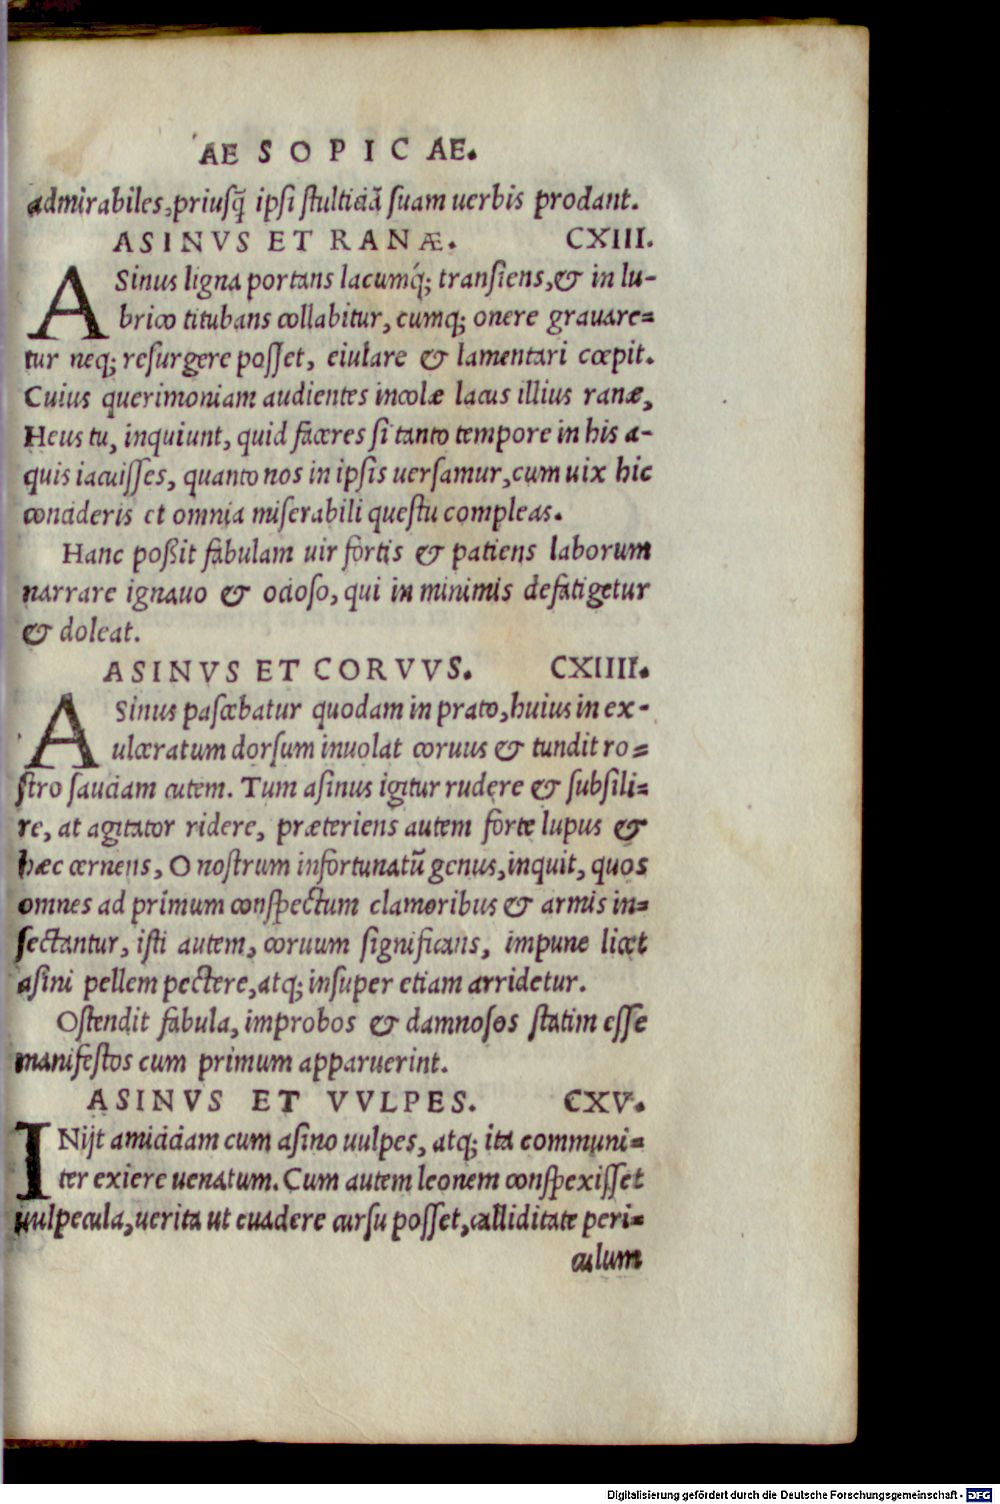 AESOPICAE.
admirabiles, priusq̃ ipsi stulticiã suam uerbis prodant.
ASINVS ET RANÆ. CXIII.
ASinus ligna portans lacumq́; transiens, & in lu-
brico titubans collabitur, cumq; onere grauare=
tur neq; resurgere posset, eiulare & lamentari cœpit.
Cuius querimoniam audientes incolæ lacus illius ranæ,
Heus tu, inquiunt, quid faceres si tanto tempore in his a-
quis iacuisses, quanto nos in ipsis uersamur, cum uix hic
concideris et omnia miserabili questu compleas.
Hanc poßit fabulam uir fortis & patiens laborum
narrare ignauo & ocioso, qui in minimis defatigetur
& doleat.
ASINVS ET CORVVS. CXIIII.
ASinus pascebatur quodam in prato, huius in ex-
ulceratum dorsum inuolat coruus & tundit ro=
stro sauciam cutem. Tum asinus igitur rudere & subsili=
re, at agitator ridere, præteriens autem forte lupus &
hæc cernens, O nostrum infortunatũ genus, inquit, quos
omnes ad primum conspectum clamoribus & armis in=
sectantur, isti autem, coruum significans, impune licet
asini pellem pectere, atq; insuper etiam arridetur.
Ostendit fabula, improbos & damnosos statim esse
manifestos cum primum apparuerint.
ASINVS ET VVLPES. CXV.
INijt amiciciam cum asino uulpes, atq; ita communi=
ter exiere uenatum. Cum autem leonem conspexisset
uulpecula, uerita ut euadere cursu posset, calliditate peri=
culum
Digitalisierung gefördert durch die Deutsche Forschungsgemeinschaft - DFG